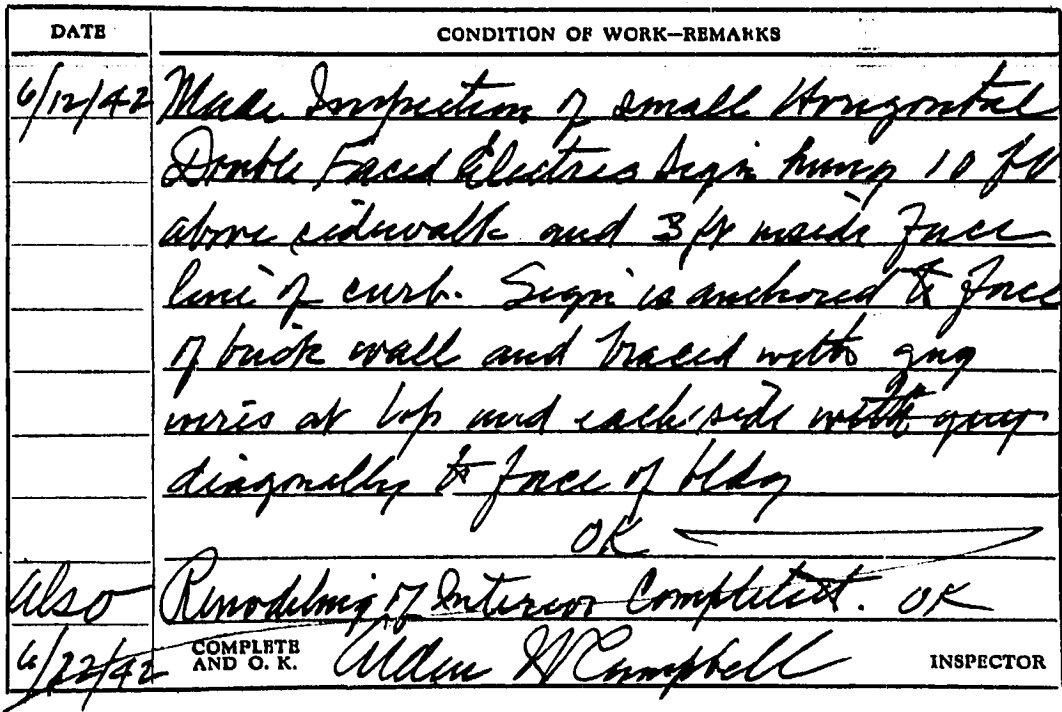 DATE CONDITION OF WORK—REMARKS
6/12/42 Made Inspection of small Horizontal
Double Faced Electric Sign hung 10 ft
above sidewalk and 3 ft inside face
line of curb. Sign is anchored to face
of brick wall and braced with guy
wires at top and each side with guy
diagonally to face of bldg
OK
Also Remodeling of Interior Completed. OK
6/22/42 COMPLETE AND O. K. Alden W Campbell INSPECTOR